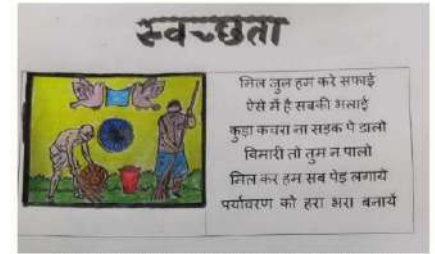 स्वच्छता
मिल जुल हम करे सफाई
ऐसे में है सबकी भलाई
कुड़ा कचरा ना सड़क पे डालो
विमारी तो तुम न पालो
मिल कर हम सब पेड़ लगाये
पर्यावरण को हरा भरा बनायें